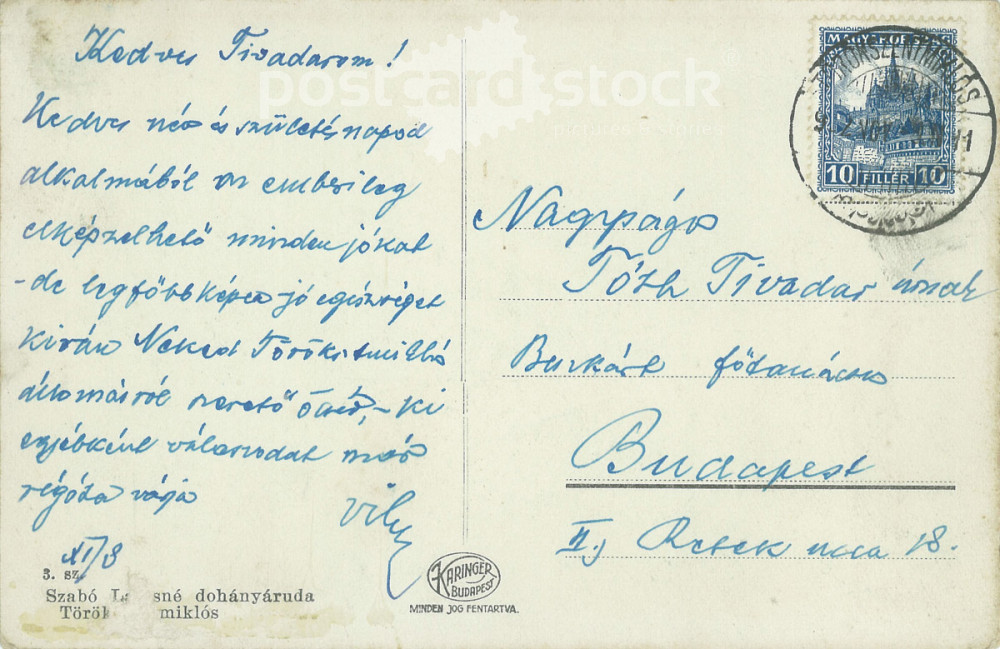 Kedves Tivadarom!
Kedves név és születésnapod
alkalmából az emberileg
elképzelhető minden jókat
-de legfőbbképen jó egészséget
kíván Neked Törökszentmiklós
állomásról szerető öcséd,- ki
egyébként válaszodat már
régóta várja
Vili
XI/8
3. sz.
Szabó L sné dohányáruda
Török miklós
KARINGER
BUDAPEST
MINDEN JOG FENTARTVA.
postcard stock
pictures & stories
MAGYAR
10 FILLÉR 10
TÖRÖKSZENTMIKLÓS
Nagyságos
Tóth Tivadar úrnak
Burkárt főtanácsos
Budapest
II., Retek ucca 18.